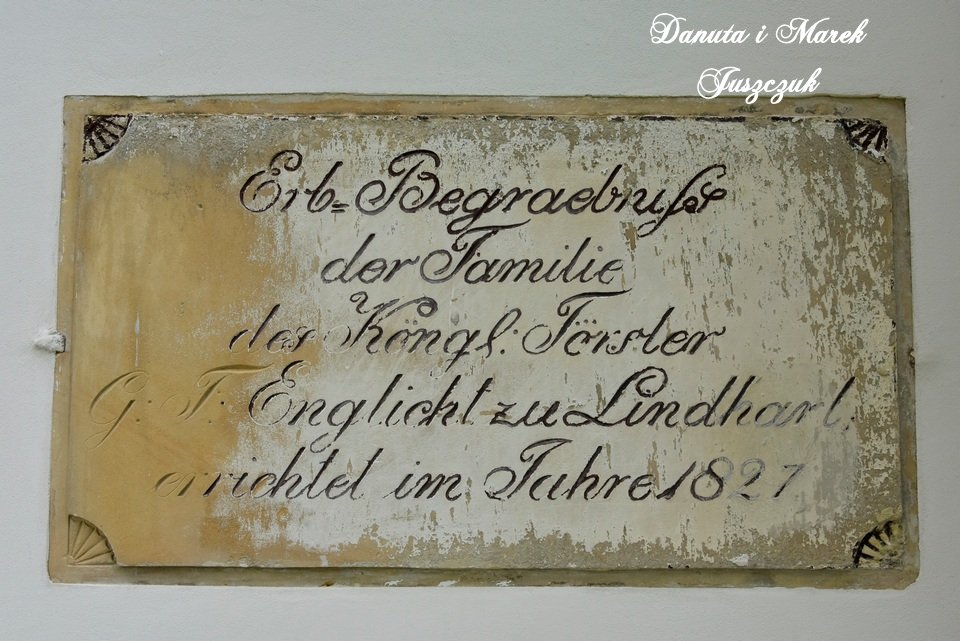 Danuta i Marek
Juszczuk
Erb=Begraebnıſst
der Familie
des Köngl: Förster
G: F: Englicht zu Lindhart,
errichtet im Jahre 1827